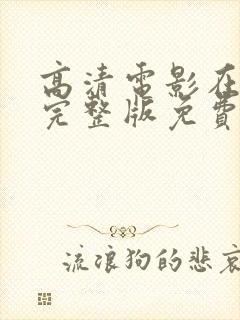 高清電影在
完整版免費
流浪狗的悲哀